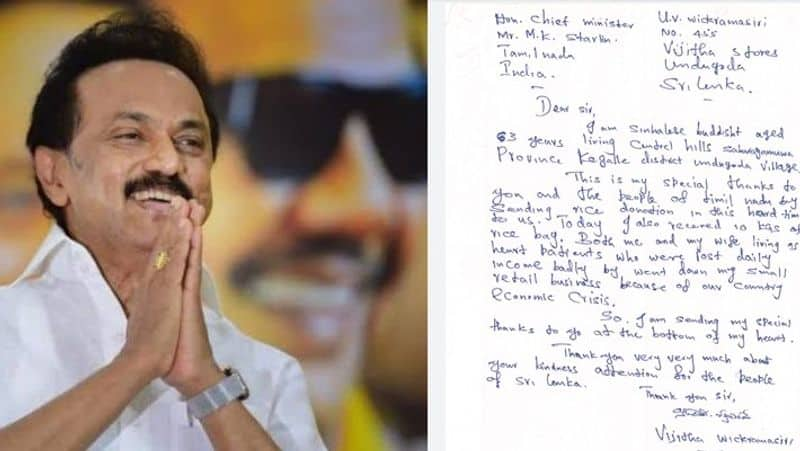 Hon. Chief minister
Mr. M.K. Starlin.
Tamil nadu
India.
U.V. Wickramasiri
No. 455
Vijitha stores
Undugoda
Sri Lenka.
Dear sir,
I am sinhalese buddisht aged
63 years living Centrel hills sabaragamuwa
Province Kegalle district undugoda village.
This is my special thanks to
you and the people of timil nadu by
sending rice donation in this heard time
to us. Today I also receved 10 kgs of
rice bag. Both me and my wife living as
heart patients who were lost daily
income badly by went down my small
retail business because of our country
economic Crisis.
So. I am sending my special
thanks to yo at the bottom of my heart.
Thank you very very much about
your kindness attention for the people
of Sri Lenka.
Thank you sir,
Vijitha wickramasiri